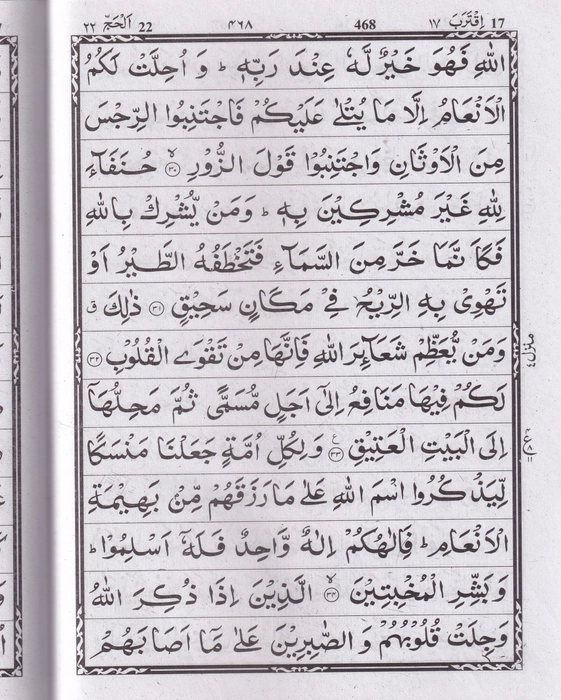 اِقْتَرَبَ ١٧ 17 468 ٤٦٨ اَلْحَجّ ٢٢ 22
اللّٰهِ فَهُوَ خَيْرٌ لَّهٗ عِنْدَ رَبِّهٖ ؕ وَ اُحِلَّتْ لَكُمُ
الْاَنْعَامُ اِلَّا مَا يُتْلٰى عَلَيْكُمْ فَاجْتَنِبُوا الرِّجْسَ
مِنَ الْاَوْثَانِ وَاجْتَنِبُوْا قَوْلَ الزُّوْرِ ﴿٣٠﴾ۙ حُنَفَآءَ
لِلّٰهِ غَيْرَ مُشْرِكِيْنَ بِهٖ ؕ وَمَنْ يُّشْرِكْ بِاللّٰهِ
فَكَاَنَّمَا خَرَّ مِنَ السَّمَآءِ فَتَخْطَفُهُ الطَّيْرُ اَوْ
تَهْوِيْ بِهِ الرِّيْحُ فِيْ مَكَانٍ سَحِيْقٍ ﴿٣١﴾ ذٰلِكَ ۗ
وَمَنْ يُّعَظِّمْ شَعَآئِرَ اللّٰهِ فَاِنَّهَا مِنْ تَقْوَى الْقُلُوْبِ ﴿٣٢﴾
لَكُمْ فِيْهَا مَنَافِعُ اِلٰٓى اَجَلٍ مُّسَمًّى ثُمَّ مَحِلُّهَآ
اِلَى الْبَيْتِ الْعَتِيْقِ ﴿٣٣﴾ۧ وَلِكُلِّ اُمَّةٍ جَعَلْنَا مَنْسَكًا
لِّيَذْكُرُوا اسْمَ اللّٰهِ عَلٰى مَا رَزَقَهُمْ مِّنْۢ بَهِيْمَةِ
الْاَنْعَامِ ؕ فَاِلٰهُكُمْ اِلٰهٌ وَّاحِدٌ فَلَهٗٓ اَسْلِمُوْا ؕ
وَ بَشِّرِ الْمُخْبِتِيْنَ ﴿٣٤﴾ۙ الَّذِيْنَ اِذَا ذُكِرَ اللّٰهُ
وَجِلَتْ قُلُوْبُهُمْ وَ الصّٰبِرِيْنَ عَلٰى مَآ اَصَابَهُمْ
منزل٤